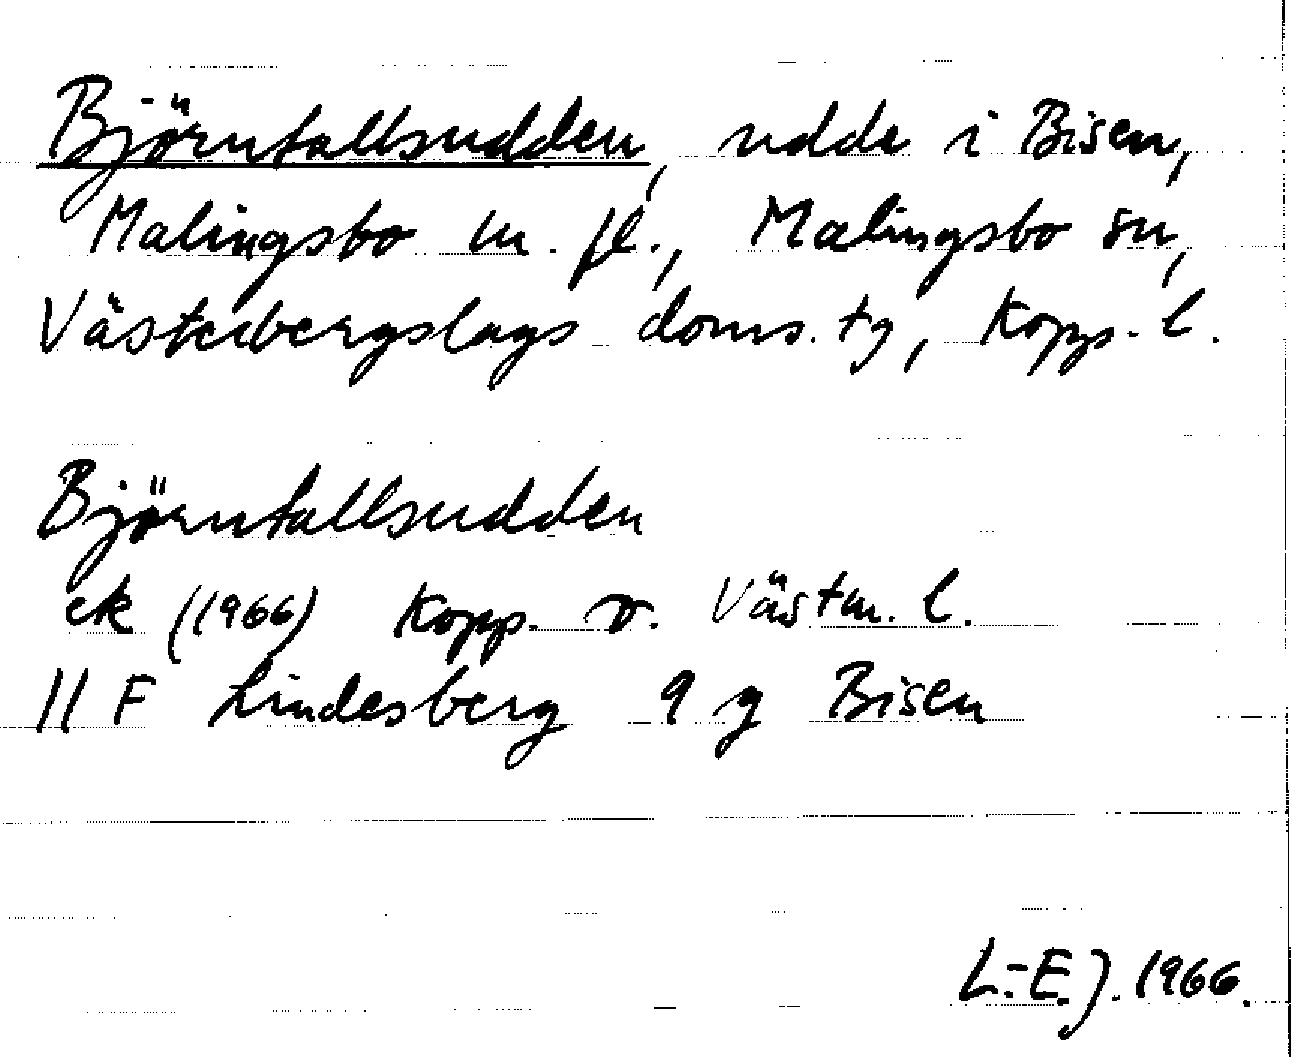 Björntallsudden, udde i Bisen,
Malingsbo m. fl., Malingsbo sn,
Västerbergslags doms. tg, Kopp. l.
Björntallsudden
ek (1966) Kopp. o. Västm. l.
11 F Lindesberg 9 g Bisen
L.-E. J. 1966.